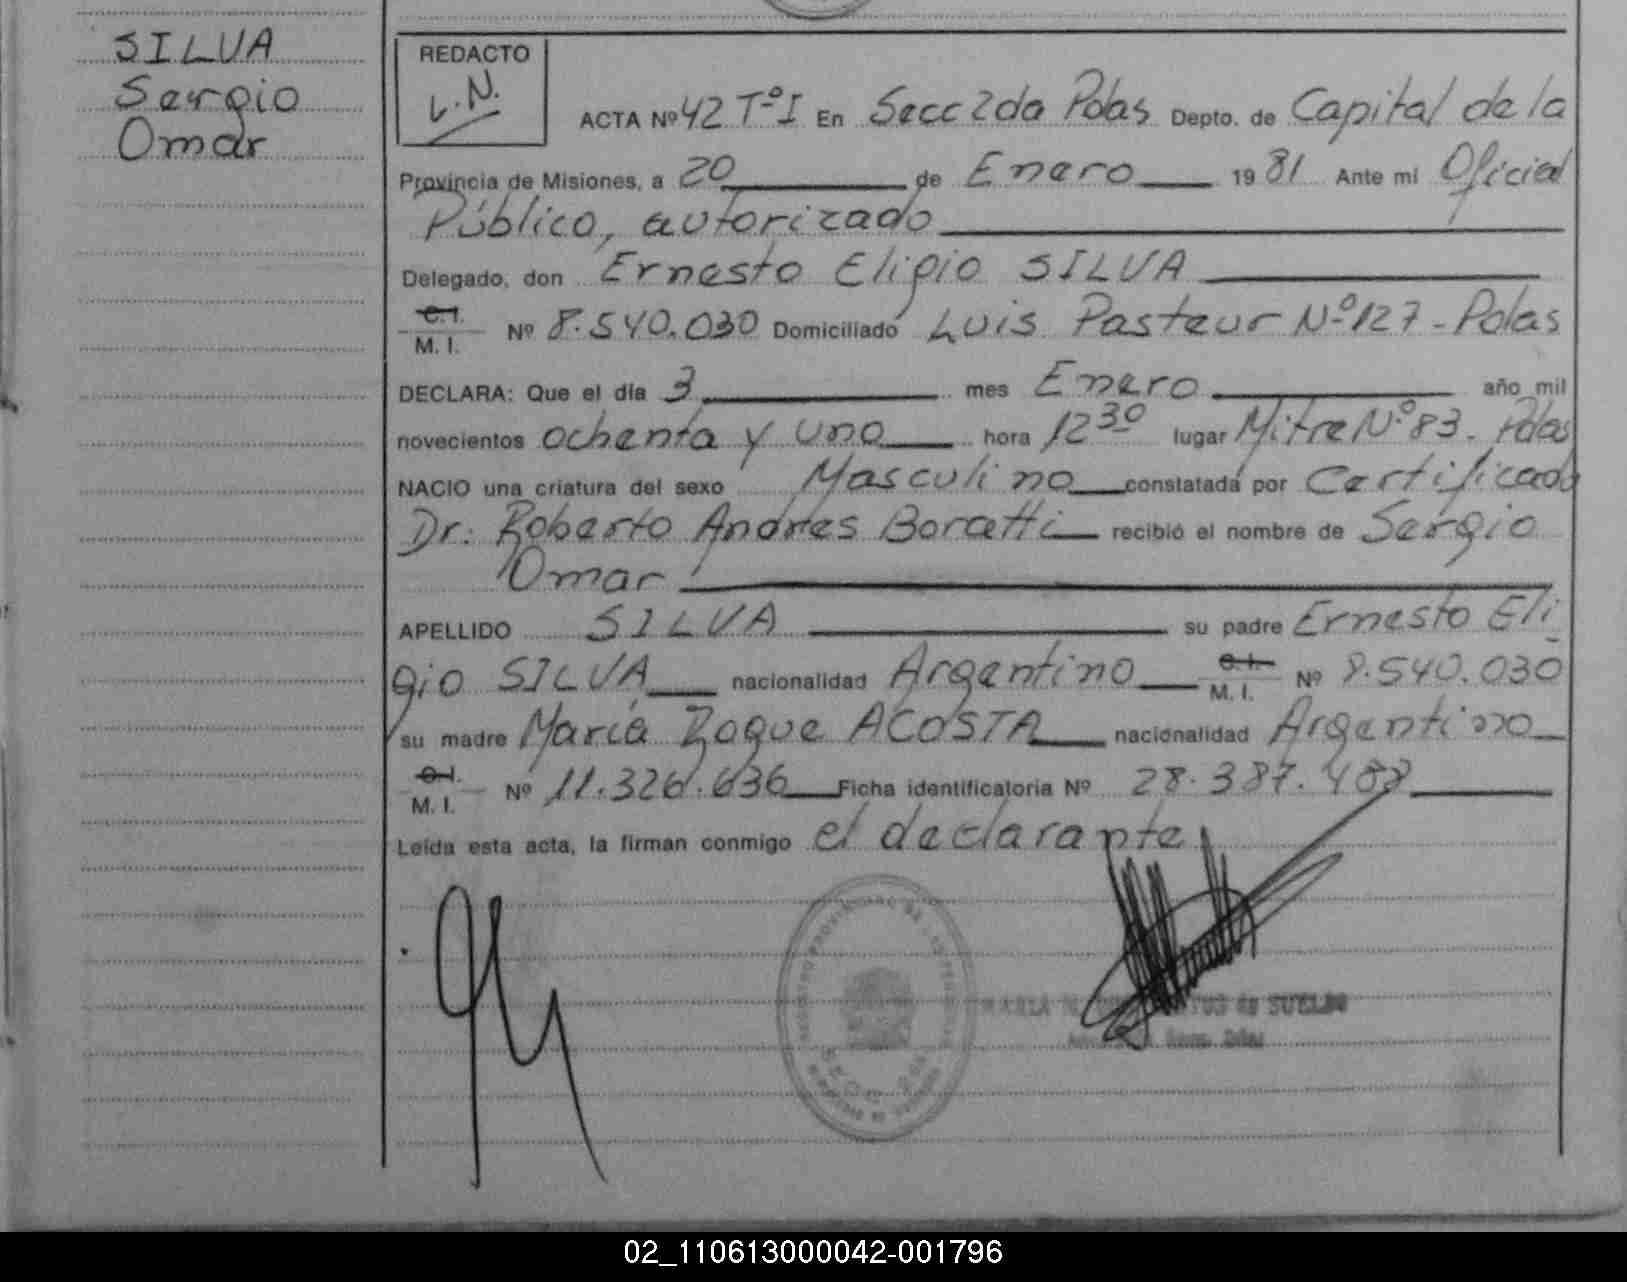 SILVA
Sergio
Omar
REDACTO
L.N.
ACTA Nº 42 Tº I En Secc 2da Pdas Depto. de Capital de la
Provincia de Misiones, a 20 de Enero 1981 Ante mi Oficial
Público, autorizado
Delegado, don Ernesto Eligio SILVA
C.I.
M. I. Nº 8.540.030 Domiciliado Luis Pasteur Nº 127 - Pdas
DECLARA: Que el día 3 mes Enero año mil
novecientos ochenta y uno hora 12 30 lugar Mitre Nº 83. Pdas
NACIO una criatura del sexo Masculino constatada por Certificado
Dr. Roberto Andres Boratti recibió el nombre de Sergio
Omar
APELLIDO SILVA su padre Ernesto Eli
gio SILVA nacionalidad Argentino C.I. M. I. Nº 8.540.030
su madre María Roque ACOSTA nacionalidad Argentino
C.I.
M. I. Nº 11.326.636 Ficha identificatoria Nº 28.387.488
Leída esta acta, la firman conmigo el declarante
MARIA de SUELDO
02_110613000042-001796